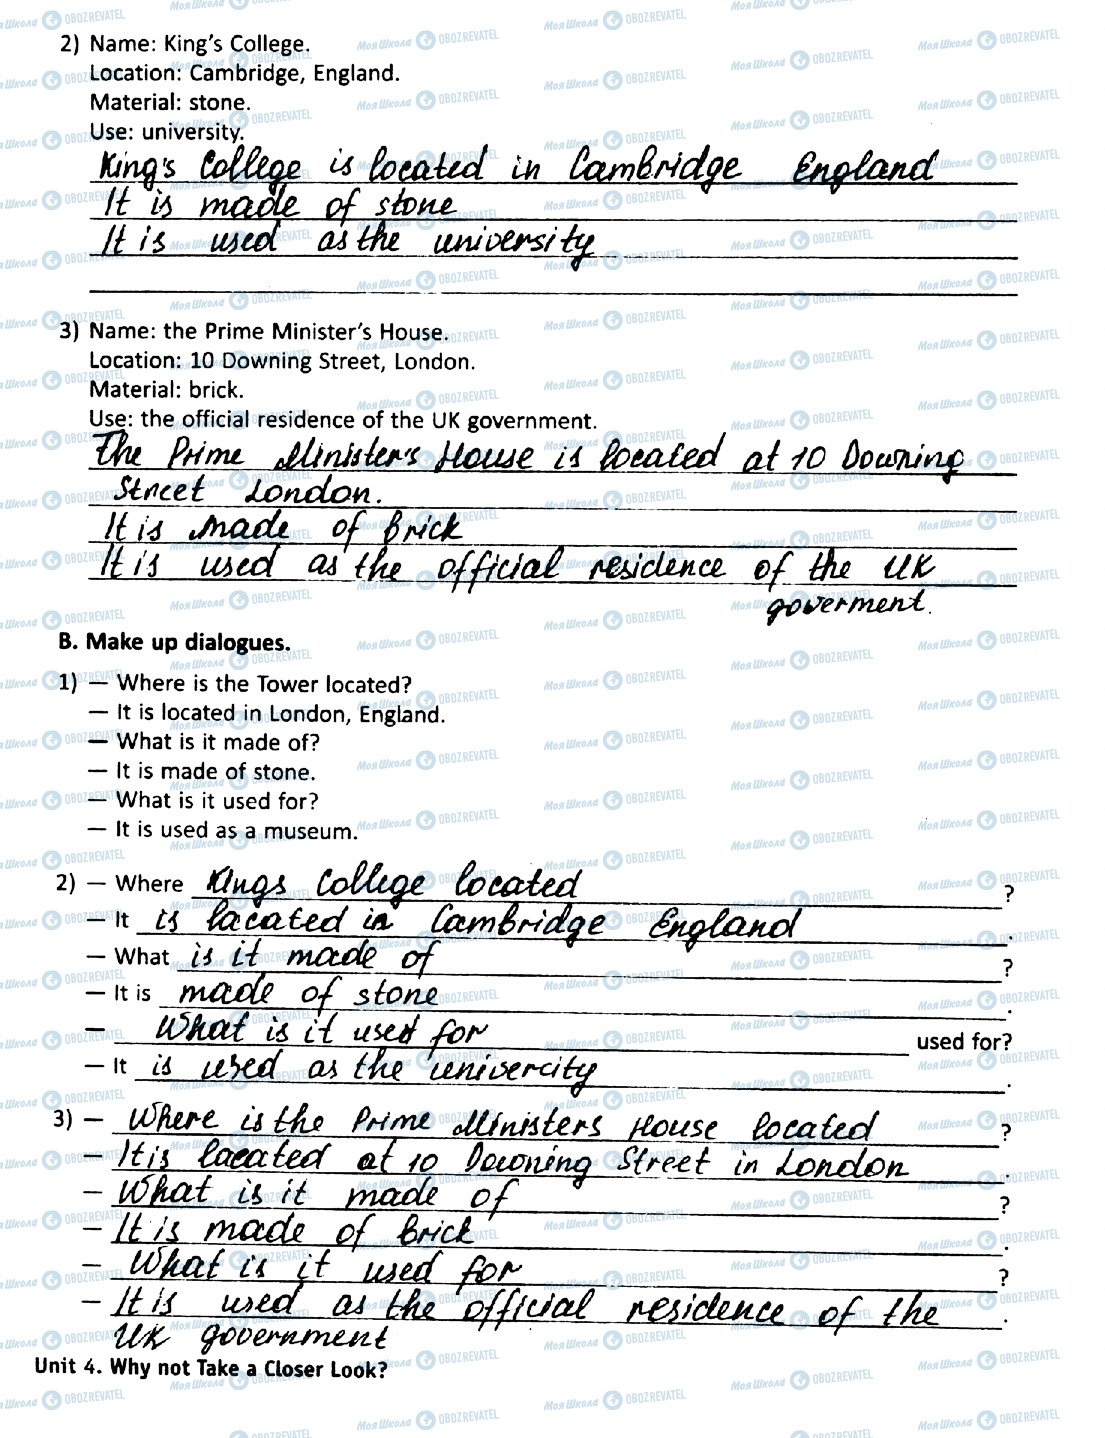 2) Name: King's College.
Location: Cambridge, England.
Material: stone.
Use: university.
King's College is located in Cambridge England
It is made of stone
It is used as the university
3) Name: the Prime Minister's House.
Location: 10 Downing Street, London.
Material: brick.
Use: the official residence of the UK government.
The Prime Minister's House is located at 10 Downing
Street London.
It is made of brick
It is used as the official residence of the UK
goverment.
B. Make up dialogues.
1) — Where is the Tower located?
— It is located in London, England.
— What is it made of?
— It is made of stone.
— What is it used for?
— It is used as a museum.
2) — Where Kings College located ?
— It is lacated in Cambridge England .
— What is it made of ?
— It is made of stone .
— What is it used for used for?
— It is used as the univercity .
3) — Where is the Prime Ministers House located ?
— It is lacated at 10 Downing Street in London .
— What is it made of ?
— It is made of brick .
— What is it used for ?
— It is used as the official residence of the .
UK government
Unit 4. Why not Take a Closer Look?
МояШкола OBOZREVATEL